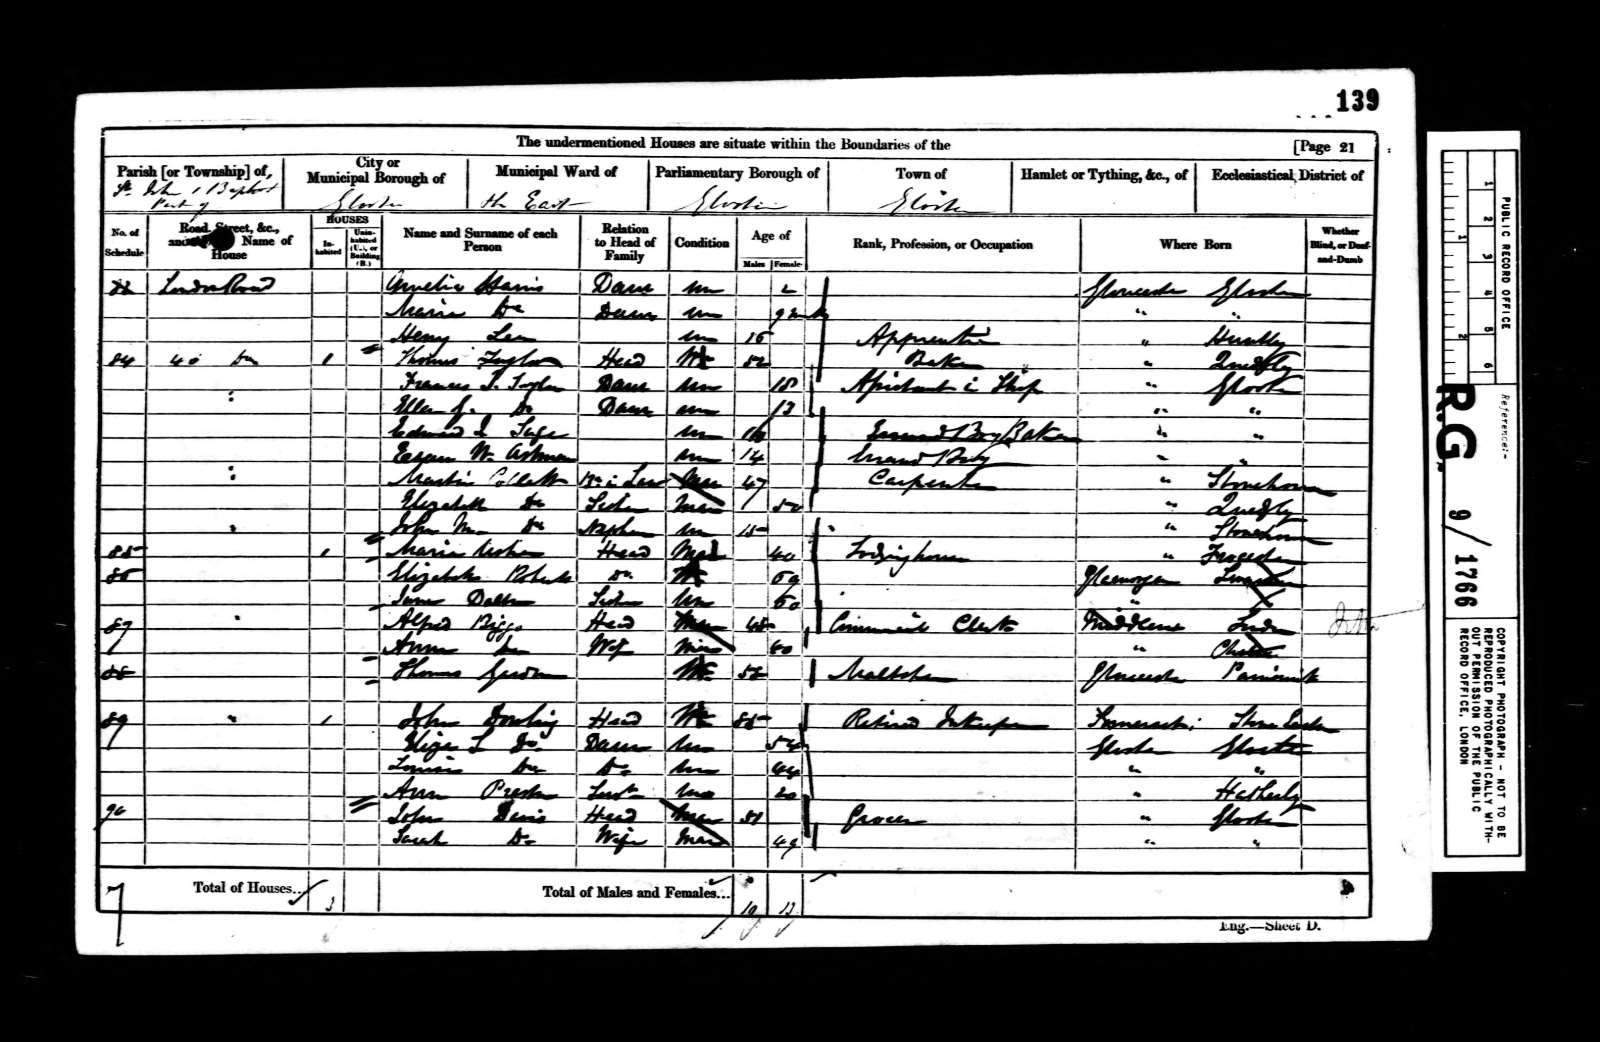 139
The undermentioned Houses are situate within the Boundaries of the [Page 21
Parish [or Township] of, City or Municipal Borough of Municipal Ward of Parliamentary Borough of Town of Hamlet or Tything, &c., of Ecclesiastical District of
St. John Baptist Part of Gloster the East Gloster Gloster
No. of Schedule Road, Street, &c., and Name of House HOUSES Inhabited Uninhabited (U.), or Building (B.) Name and Surname of each Person Relation to Head of Family Condition Age of Males Females Rank, Profession, or Occupation Where Born Whether Blind, or Deaf-and-Dumb
London Road Amelia Harris Daur Un 2 Gloucester Gloster
Maria Do Daur Un "
Henry Lea Un 16 Apprentice " Huntley
84 40 Do 1 Thomas Taylor Head Wr 52 Baker " Quedgly
Frances Taylor Daur Un 18 Assistant in Shop " Gloster
Ellen J. Do Daur Un 13 " "
Edward Un Errand Boy Baker " "
W. Un 14 Errand Boy " "
Martin Collett Br in Law Mar 47 Carpenter " Stonehouse
Elizabeth Do Sister Mar 50 " Quedgly
John M. Do Nephew Un 15 " Stonehouse
85 1 Maria Head 40 Lodginghouse "
86 Elizabeth Roberts Do 69 Glamorgan Swansea
Jane Sister Un 60 "
87 " Alfred Biggs Head Mar 48 Clerk Middlesex
Ann Do Wife Mar 40 "
88 Thomas Wr 52 Maltster Gloucester Painswick
89 " 1 John Dowling Head Wr 85 Retired Inkeeper Somerset Ston Easton
Eliza L Do Daur Un 54 Gloster Gloster
Louisa Do Do Un 44 " "
Ann Preston Servt Un 20 " Hatherly
90 John Davis Head Mar 51 Grocer " Gloster
Sarah Do Wife Mar 49 " "
Total of Houses... 3 Total of Males and Females...
Eng.—Sheet D.
PUBLIC RECORD OFFICE
1 2 3 4 5 6
1 2
Reference:-
R.G. 9/1766
COPYRIGHT PHOTOGRAPH - NOT TO BE
REPRODUCED PHOTOGRAPHICALLY WITH-
OUT PERMISSION OF THE PUBLIC
RECORD OFFICE, LONDON